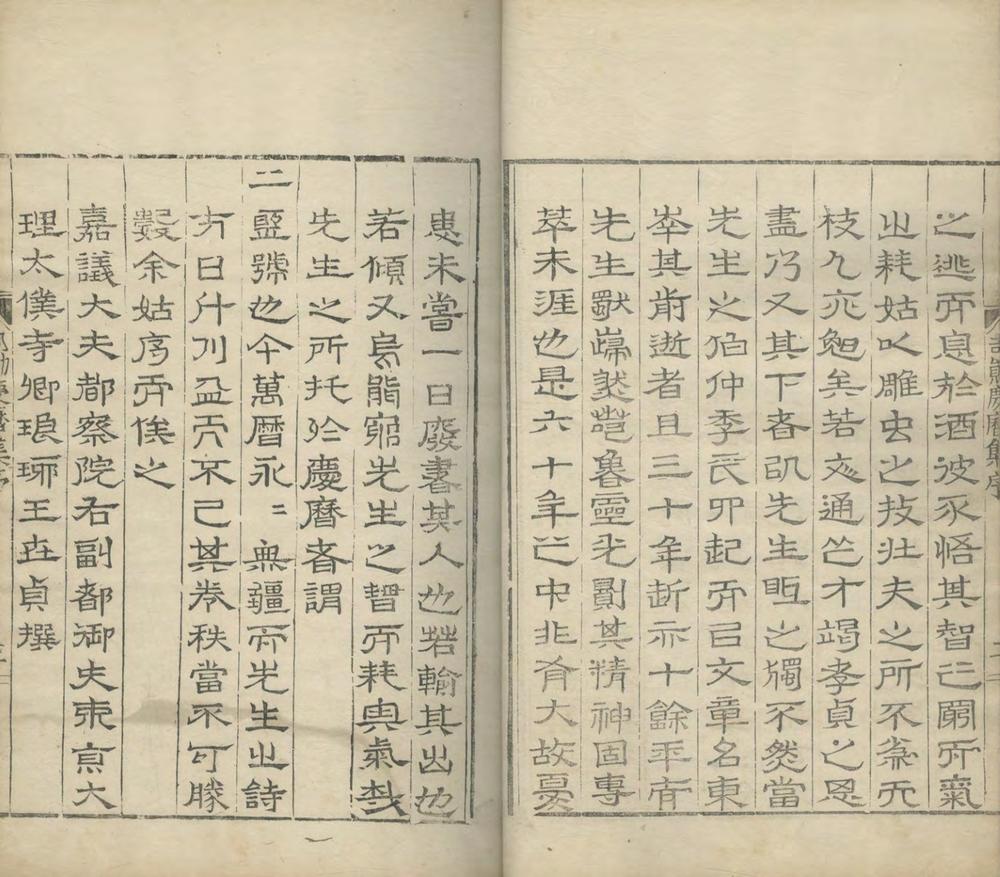 之逃而息於酒彼不悟其智之窮而氣
之耗姑以雕虫之技壯夫之所不為而
枝心亦勉矣若交通之才竭孝貞之恩
盡乃又其下者即先生之獨不然當
先生之伯仲季氏卯起而以文章名東
其前逝者且三十年近亦十餘年而
先生猷巋然魯靈光劉其精神固專
萃未涯也是六十年之中非有大故憂
患未嘗一日廢書其人也若輸其出也
若傾又烏能窮先生之智而耗其氣哉
先生之所托於慶曆者謂
二號也今萬曆永二無疆而先生之詩
方日升川益而不已其卷秩當不可勝
數余姑序而俟之
嘉議大夫都察院右副都御史南京大
理太僕寺卿琅琊王世貞撰